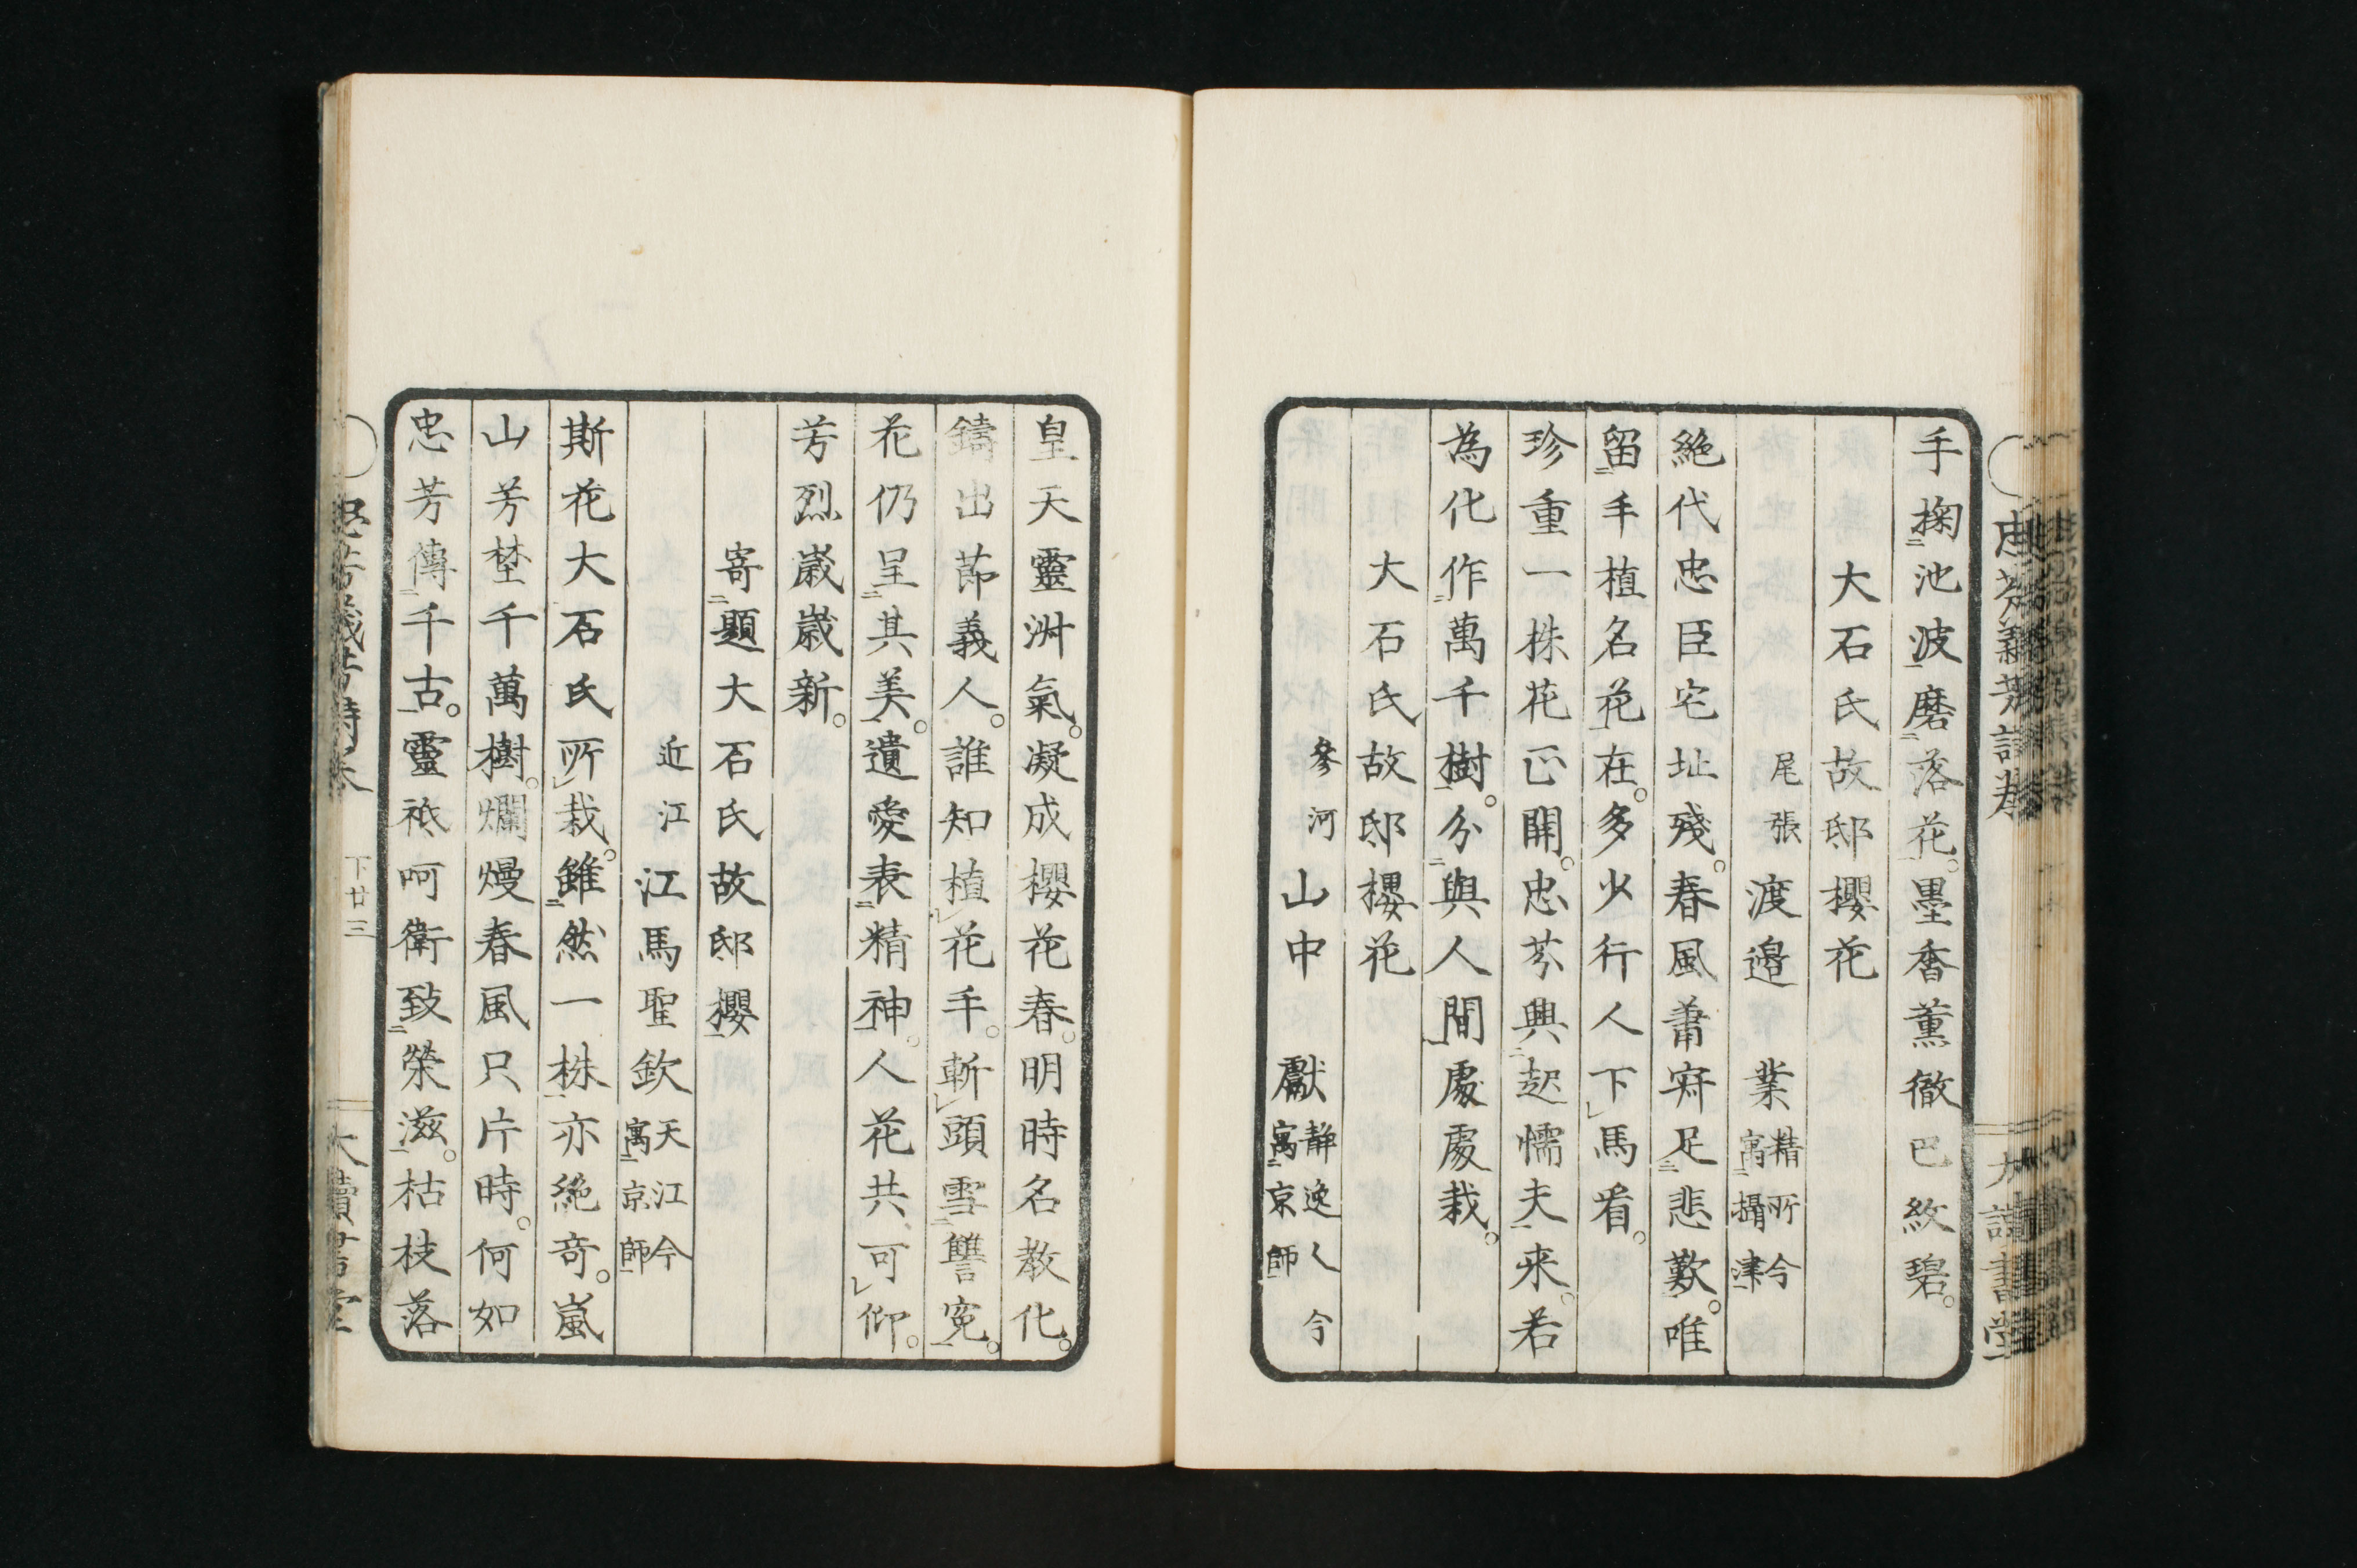 手掬池波磨落花。墨香薰徹巴紋碧。
大石氏故邸櫻花
尾張 渡邉 業 精所今寓攝津
絶代忠臣宅址殘。春風蕭寂足悲歎。唯
留手植名花在。多少行人下馬看。
珍重一株花正開。忠芬興起懦夫来。若
為化作萬千樹。分與人間處處栽。
大石氏故邸櫻花
參河 山中 獻 静逸 今寓京師
皇天靈淋氣。凝成櫻花春。明時名教化。
鑄出節義人。誰知植花手。斬頭雪讐寃。
花仍呈其美。遺愛表精神。人花共可仰。
芳烈歳歳新。
寄題大石氏故邸櫻
近江 江馬聖欽 天江今寓京師
斯花大石氏所栽。雖然一株亦絶奇。嵐
山芳埜千萬樹。爛熳春風只片時。何如
忠芳傳千古。靈祇呵衛致榮滋。枯枝落
忠芳義芳詩巻 下廿三 大讀書堂